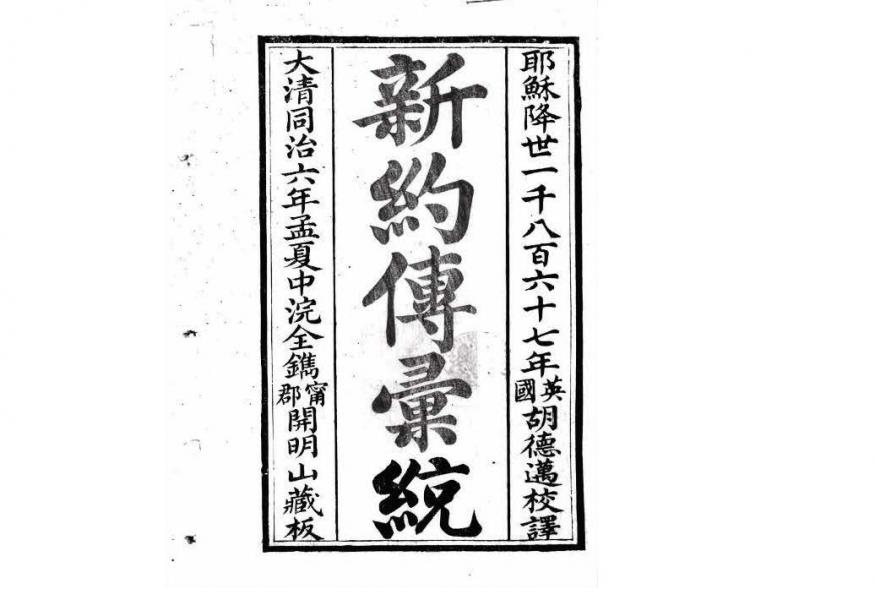 耶穌降世一千八百六十七年英國胡德邁校譯
新約傳彙統
大清同治六年孟夏中浣全鐫甯郡開明山藏板